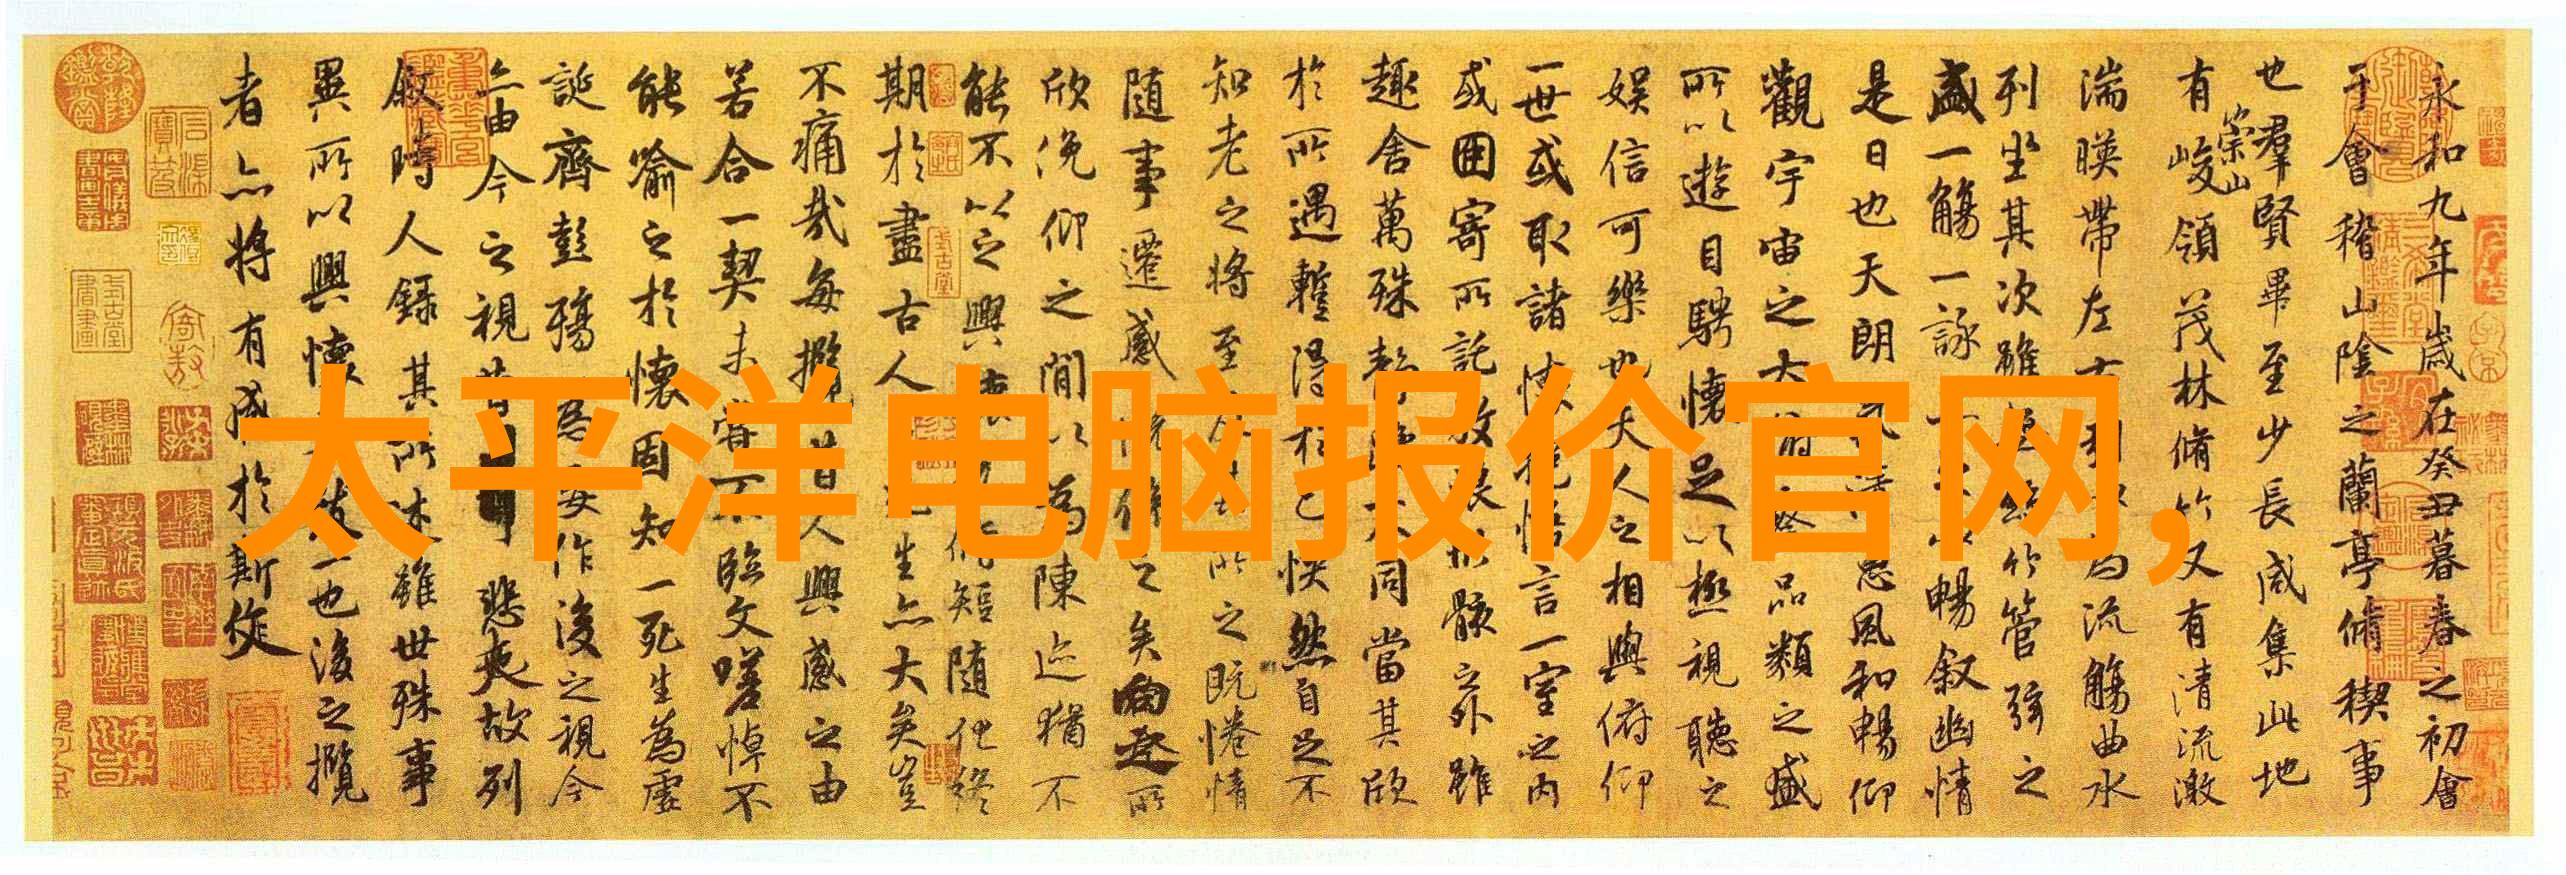 永和九年歲在癸丑暮春之初會
于會稽山陰之蘭亭脩稧事
也羣賢畢至少長咸集此地
有崇山峻領茂林脩竹又有清流激
湍暎帶左右為流觴曲水
列坐其次雖竹管弦之
盛一觴一詠暢叙幽情
是日也天朗風和暢仰
觀宇宙之大品類之盛
所以遊目騁懷足以極視聽之
娛信可樂也夫人之相與俯仰
一世或取諸懷悟言一室之內
或因寄所託放浪骸之外雖
趣舍萬殊靜不同當其欣
於所遇暫得於己怏然自足不
知老之將至所之既惓情
隨事遷感係之矣向之所
欣俛仰之間以為陳迹猶不
能不以之興懷短隨化終
期於盡古人生亦大矣豈
不痛哉每攬昔人興感之由
若合一契未嘗不臨文嗟悼不
能喻之於懷固知一死生為虛
誕齊彭殤為妄作後之視今
亦由今之視昔悲夫故列
叙時人錄其所述雖世殊事
異所以興懷一也後之攬
者亦將有感於斯文
太平洋电脑报价官网,